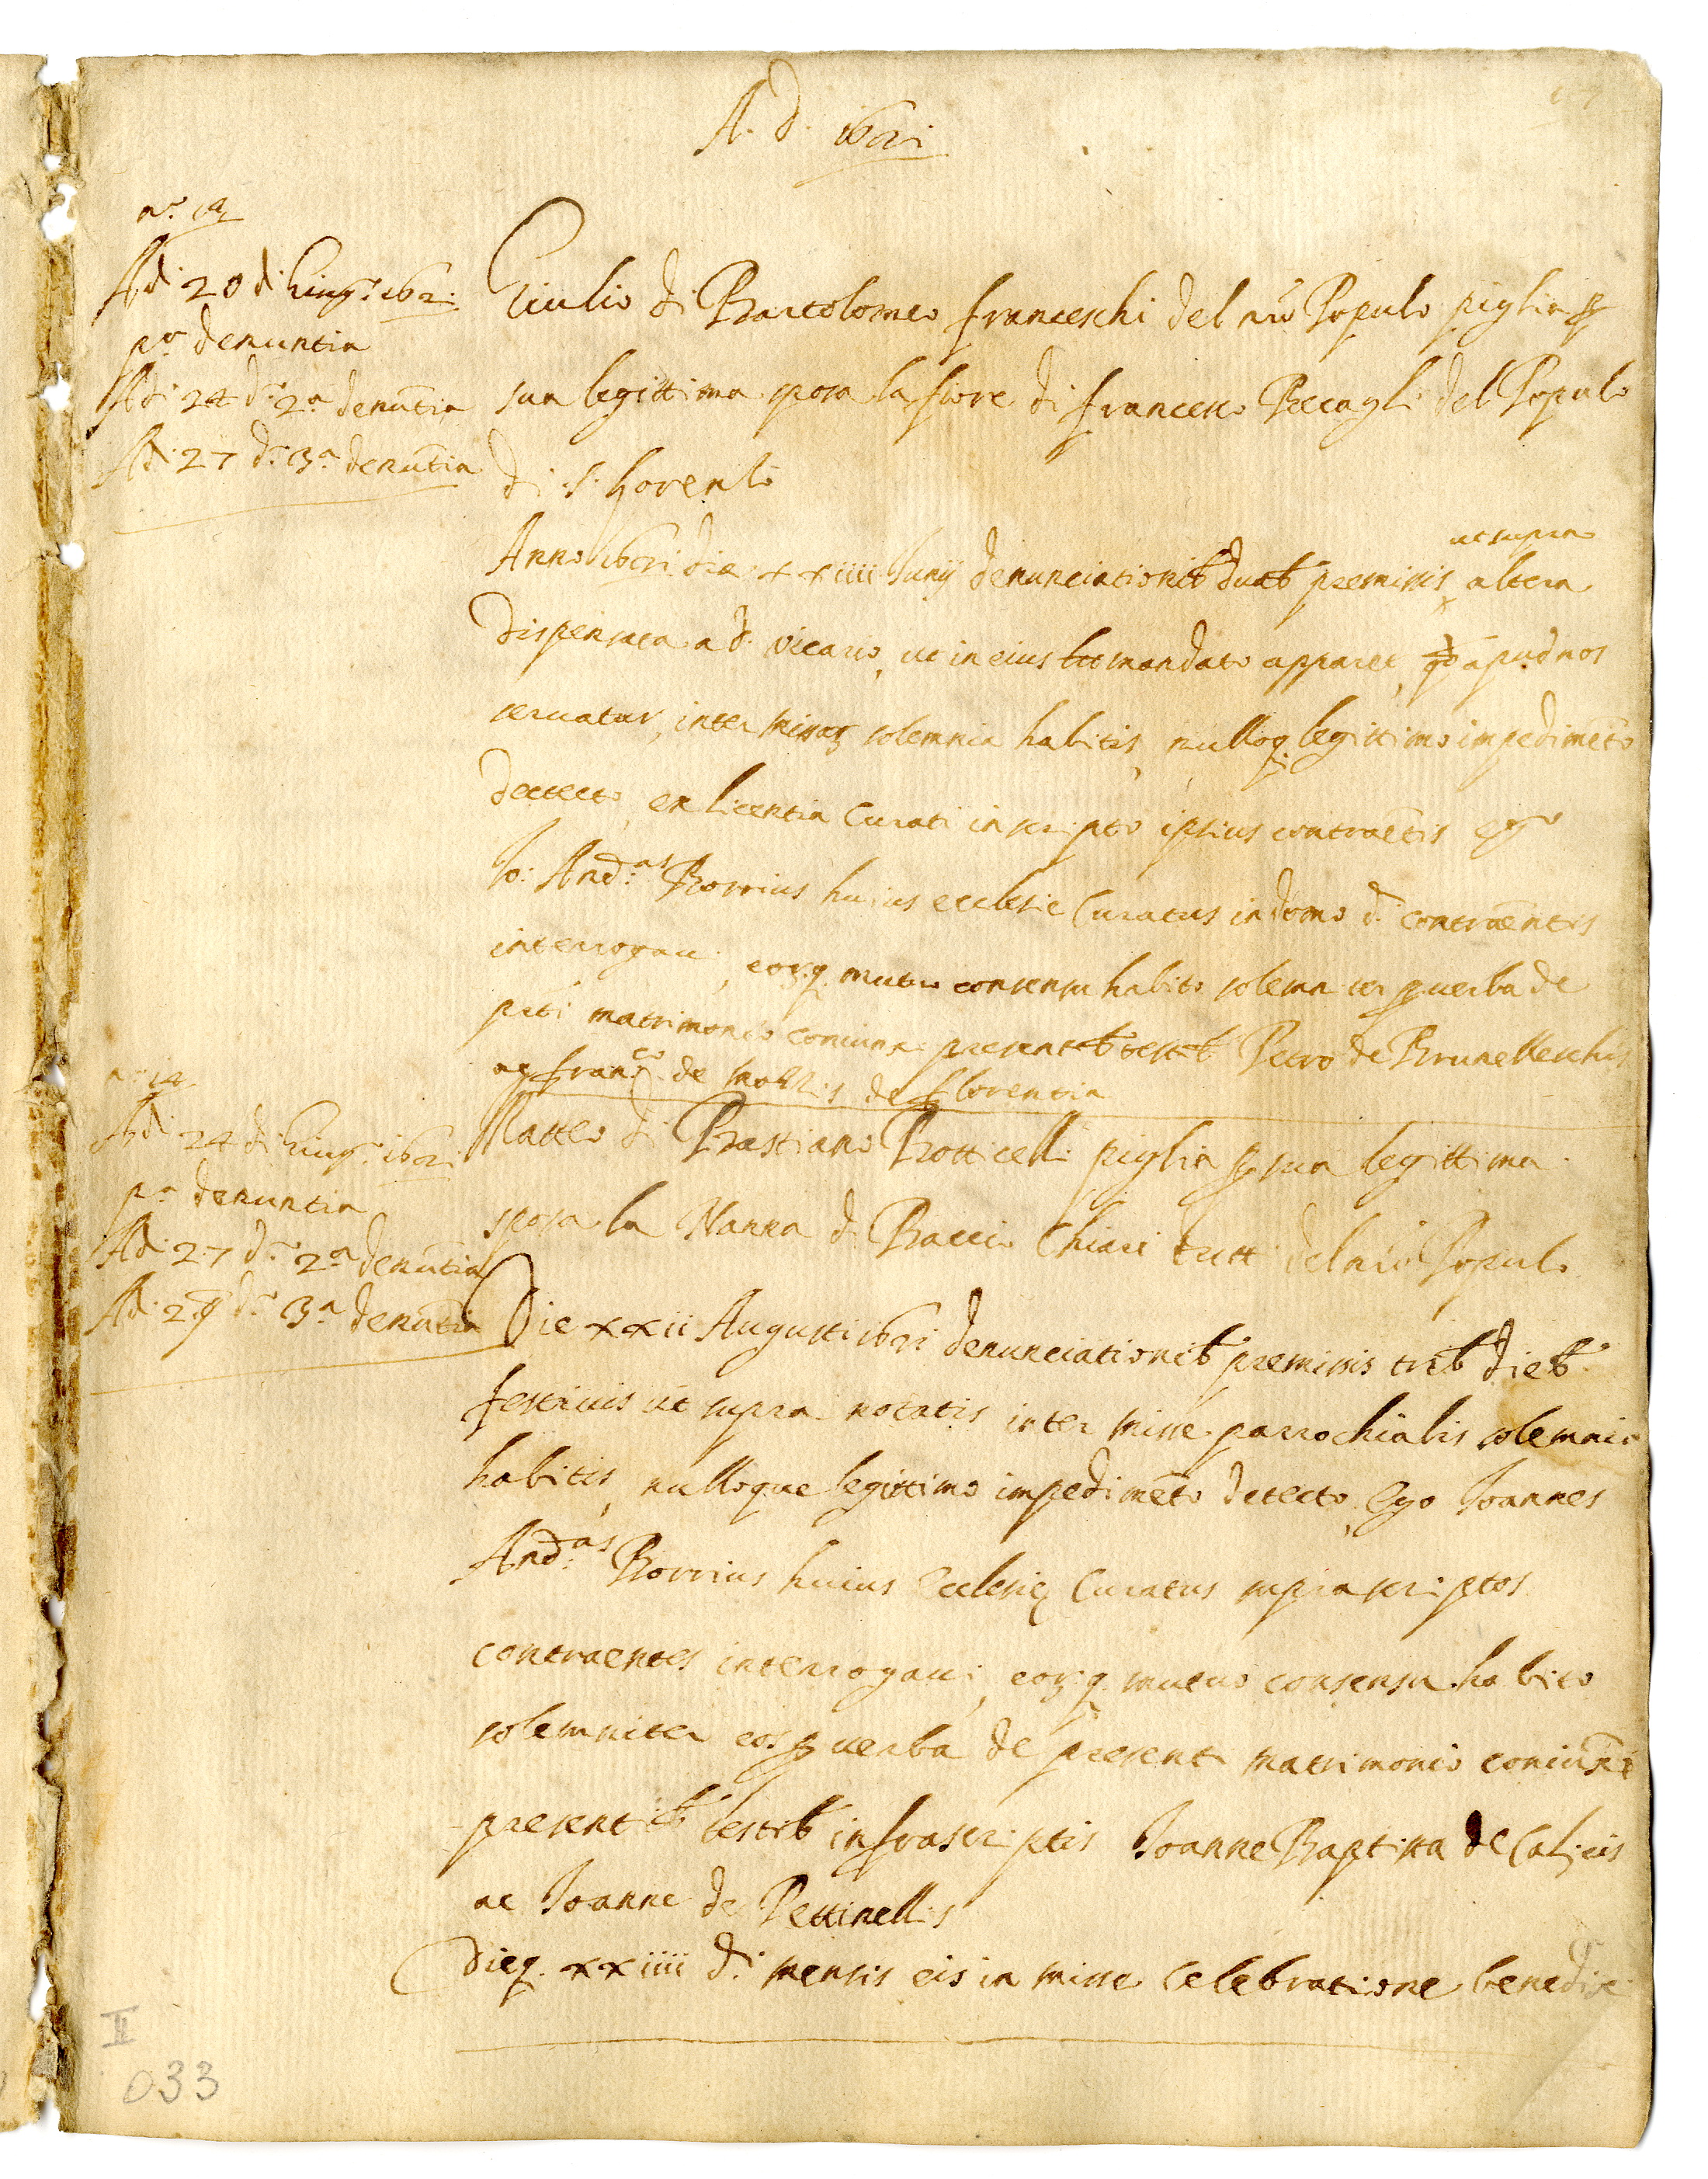 A. D. 1621
nº. 13
Adi 20 di Giugº. 1621
pª denuntia
Adi 24 dº. 2ª denūtia
Adi 27 dº. 3ª denūtia
Giulio di Bartolomeo Franceschi del nrō Populo piglia p
sua legittima sposa la fiore di francesco Becagli del Populo
di S. Lorenzo
ut supra
Anno 1621 die xxiiii Iunij denunciationib duab premissis altera
dispensata a d. Vicario, ut in eius mandato apparet, apud nos
servatur, inter missaȝ solemnia habitis, nulloq legittimo impedimēto
detecto, ex licentia Curati in scripto ipsius contraētis ego
Io: Andas. Borrius huius ecclesie Curatus in domo d. contraēntis
interrogaui, eorq mutuo consensu habito solemniter p uerba de
pnti matrimonio coniunxi presentib testib Petro de Brunelleschis
ac Francº de de florentia
nº. 14
Adi 24 di Giugº. 1621
pª denuntia
Adi 27 dº. 2ª denūtia
Adi 29 dº. 3ª denūtia
Matteo di Bastiano Botticelli piglia p sua legittima
sposa la Nanna di Baccio Chiari tutti del nrō Populo
Die xxii Augusti 1621 denunciationib premissis trib dieb
festiuis ut supra notatis inter misse parrochialis solemnia
habitis, nulloque legittimo impedimēto detecto, Ego Ioannes
Andas. Borrius huius Ecclesię Curatus suprascriptos
contraentes interrogaui, eorq mutuo consensu habito
solemniter eos p uerba de presenti matrimonio coniunxi
presentib testib infrascriptis Ioanne Baptista de Calicis
ac Ioanne de Pettinellis
Dieq. xxiiii di. mensis eis in misse celebratione benedixi
II
033